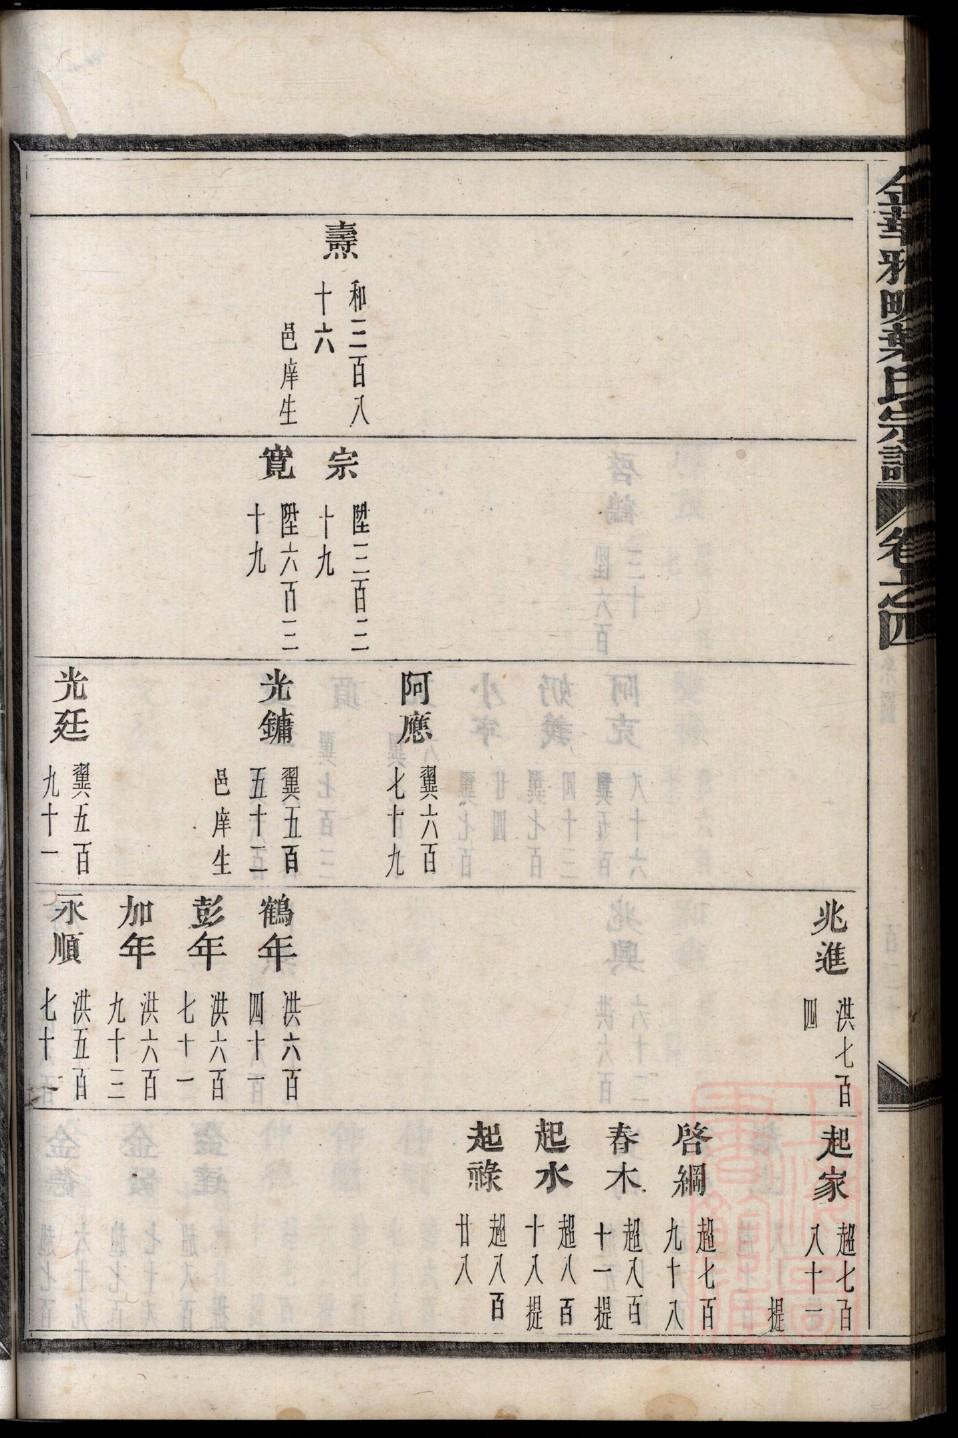 金華雅畈葉氏宗譜 卷之四
燾
和三百八
十六
邑庠生
宗
陞三百二
十九
寬
陞六百三
十九
阿應
翼六百
七十九
光鏞
翼五百
五十二
邑庠生
光廷
翼五百
九十一
兆進
洪七百
四
鶴年
洪六百
四十一
彭年
洪六百
七十一
加年
洪六百
九十三
永順
洪五百
七十二
起家
趨七百
八十一
提
啓綱
趨七百
九十八
春木
趨八百
十一提
起水
趨八百
十八提
起祿
趨八百
廿八